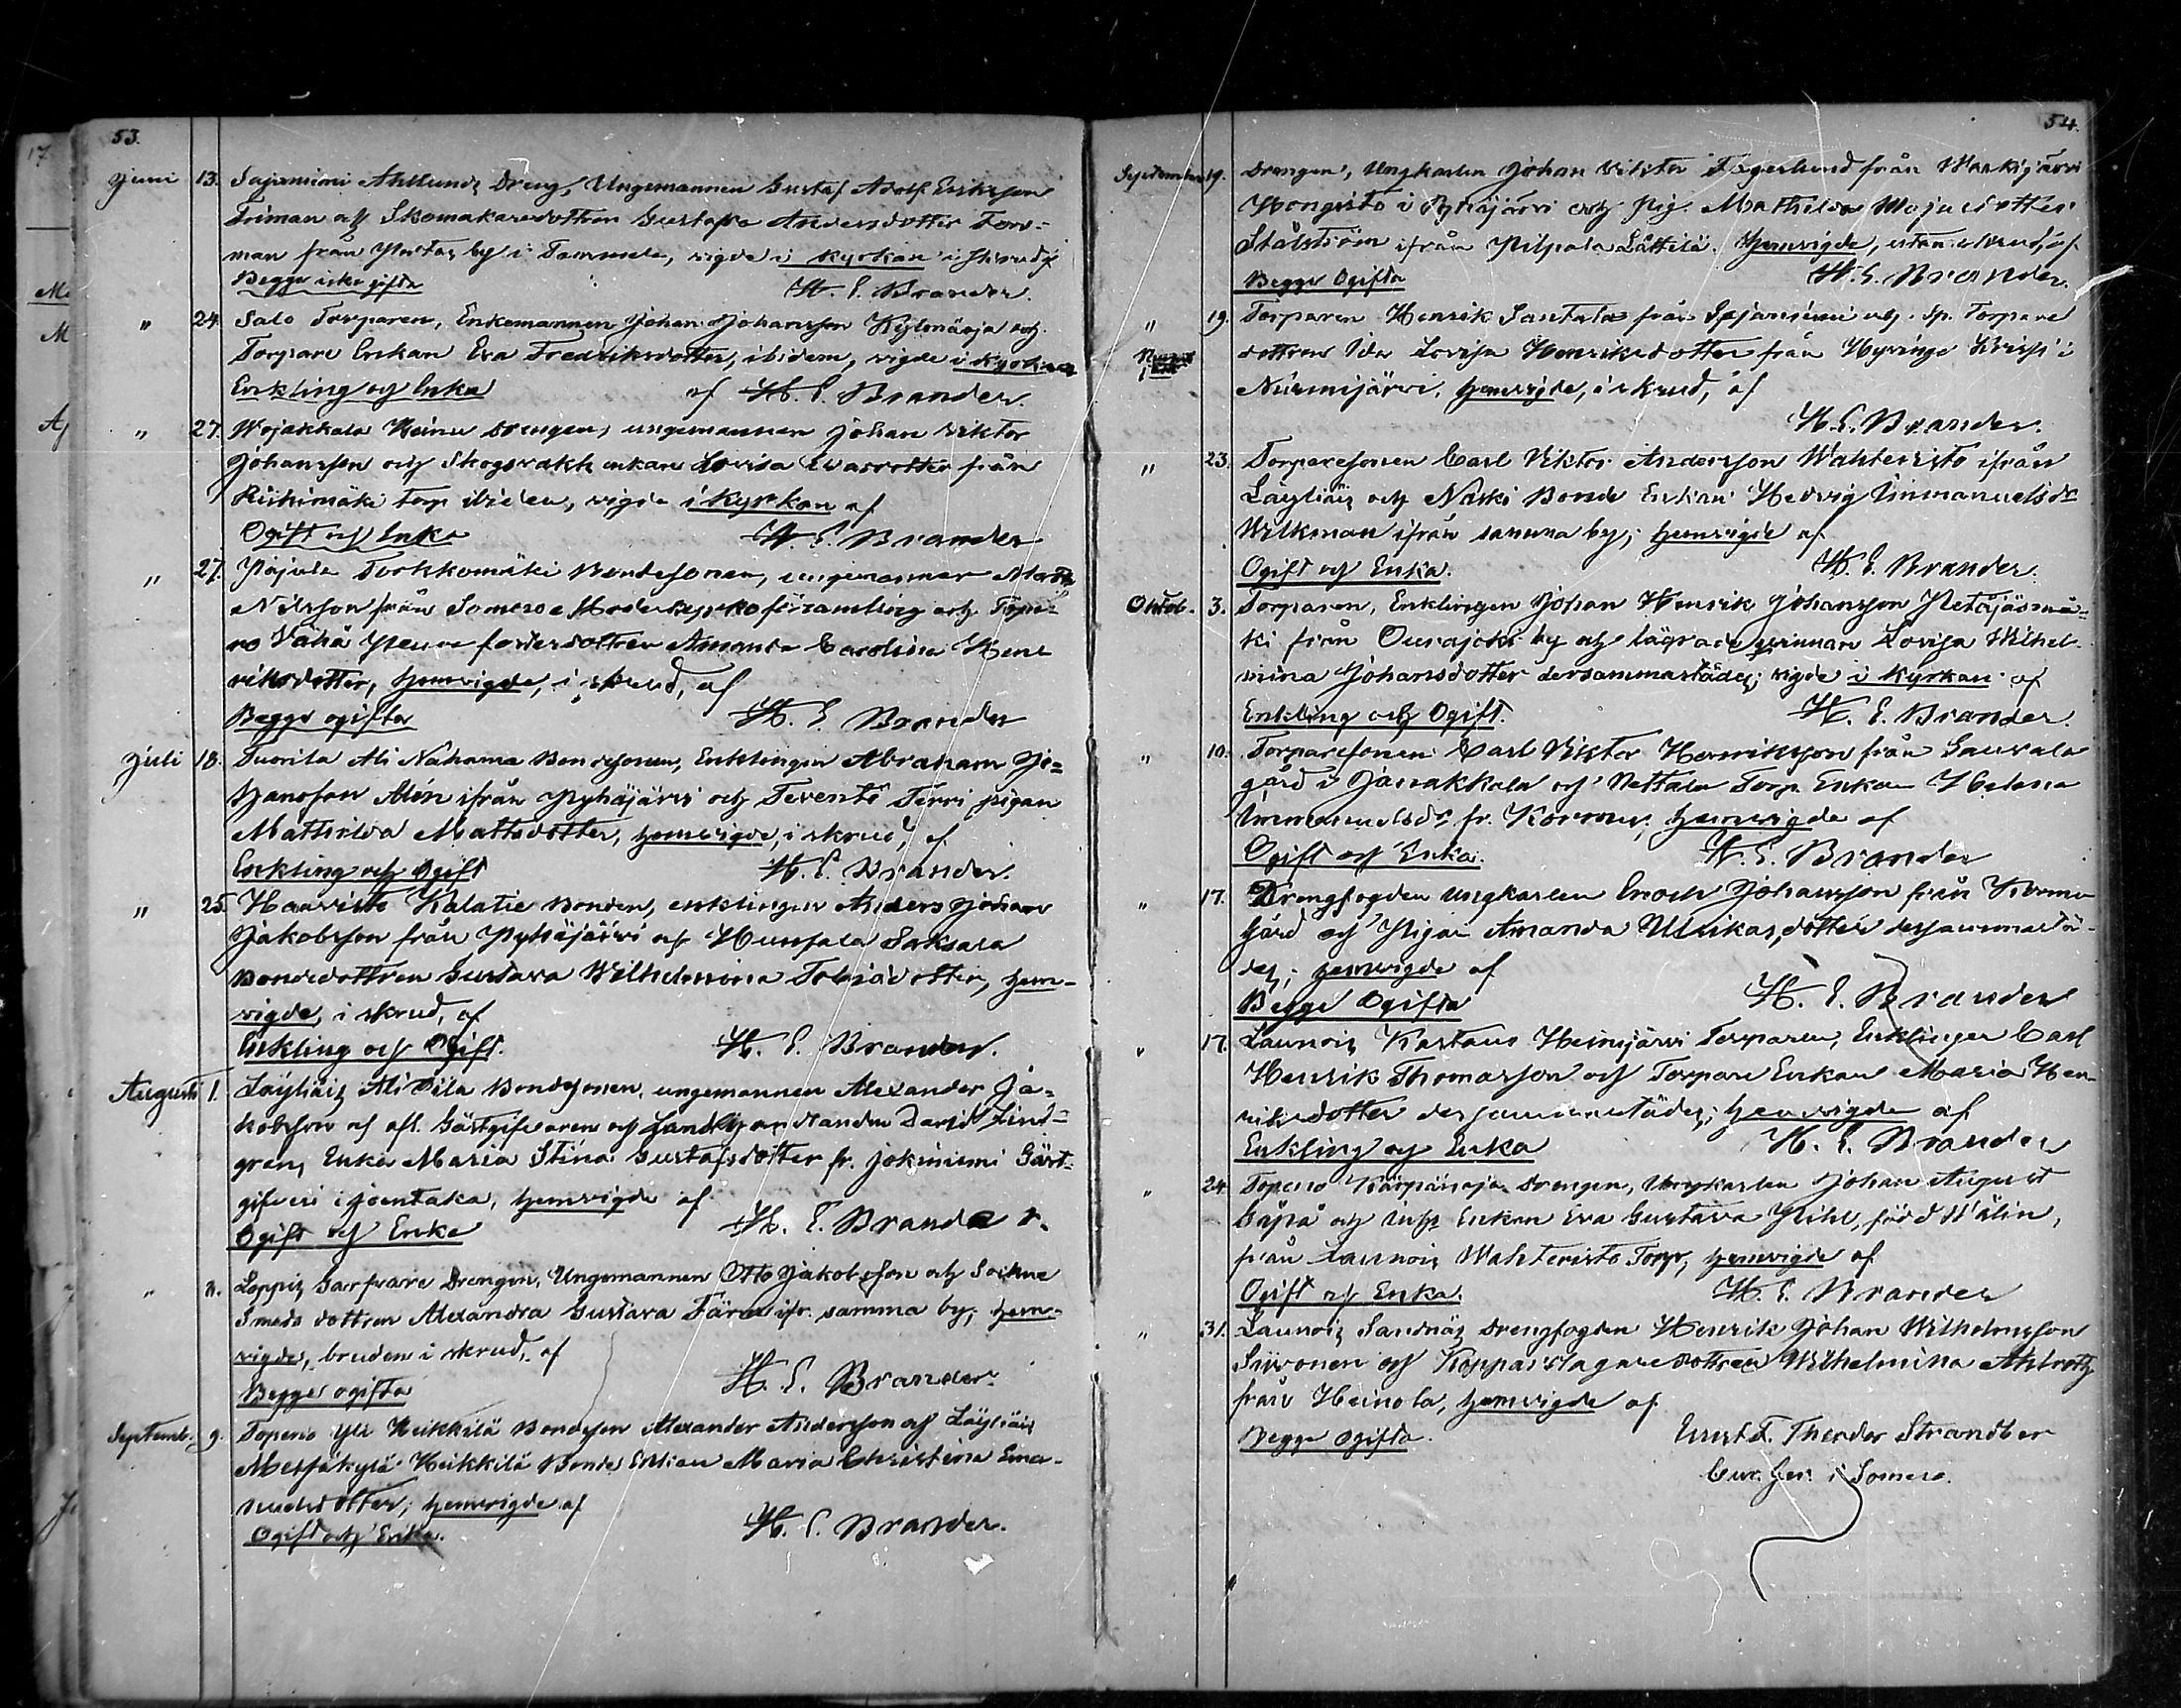 53.
Juni 13. Sajaniemi Ahllunds Dreng, Ungemannen Gustaf Adolf Eriksson
Friman och Skomakaredottren Gustafva Andersdotter For-
man från by i Tammela, vigde i kyrkan i skrud af
Begge icke gifta H. E. Brander.
" 24. Salo Torparen, Enkemannen Johan Johansson Kylmäoja och
Torpare Enkan Eva Fredriksdotter, ibidem, vigde i Kyrkan
Enkling och Enka af H. E. Brander.
" 27. Wojakkala Heinu drengen, ungemannen Johan Viktor
Johansson och Skogsvakt enkan Lovisa Evasdotter från
Riihimäki torp ibidem, vigde i Kyrkan af
Ogift och Enka H. E. Brander
" 27. Pajula Torkkomäki Bondesonen, ungemannen
Nilsson från Somero Moderkyrkoförsamling och Tope-
no Vähä fosterdottren Amanda Carolina Hen-
riksdotter, hemvigde, i skrud, af
Begge ogifta H. E. Brander
Juli 18. Tuorila Ali Nahama Bondesonen, Enklingen Abraham Jo-
hansson Alén ifrån Pyhäjärvi och Teventö Terri pigan
Mathilda Mattsdotter, hemvigde, i skrud, af
Enkling och Ogift H. E. Brander.
" 25. Haavisto Kalatie Bonden, enklingen Anders Johan
Jakobsson från Pyhäjärvi och Hunsala Saksala
Bondedottren Gustava Wilhelmina Tobiasdotter, hem-
vigde, i skrud, af
Enkling och Ogift. H. E. Brander.
Augusti 1. Läyliäis Ali Pila Bondesonen, ungemannen Alexander Ja-
kobsson och afl. Gästgifvaren och David Lind-
grens Enka Maria Stina Gustafsdotter fr. Jokiniemi Gäst-
gifveri i Joentaka, hemvigde af
Ogift och Enka H. E. Brander.
" Loppis Drengen, Ungemannen Otto Jakobsson och
Smeds dottren Alexandra Gustava Färm ifr. samma by; hem-
vigde, bruden i skrud, af
Begge ogifta H. E. Brander.
Septemb. 9. Topeno Yli Heikkilä Bondeson Alexander Andersson och Läyliäis
Metsäkylä Heikkilä Bonde Enkan Maria Christina Ema-
nuelsdotter; hemvigde af
Ogift och Enka. H. E. Brander.
54.
September 19. Drengen, Ungkarlen Johan Viktor Fagerlund från
Hongisto i Pyhäjärvi och Pig. Mathilda Majasdotter
Stålström ifrån Pilpala Låttilä. Hemvigde, utan skrud, af
Begge Ogifta H. E. Brander.
" 19. Torparen Henrik Santala från Sajaniemi och Sp. Torpare
dottren Ida Lovisa Henriksdotter från Hyvinge Krissi i
Nurmijärvi, hemvigde, i skrud, af
H. E. Brander.
" 23. Torparesonen Carl Viktor Andersson Wahteristo ifrån
Läyliäis och Naski Bonde Enkan Hedvig Immanuelsdr
Welkman ifrån samma by; hemvigde af
Ogift och Enka. H. E. Brander.
Oktob. 3. Torparen, Enklingen Johan Henrik Johansson Petäjäsmä-
ki från Ourajoki by och lägrade qvinnan Lovisa Wilhel-
mina Johansdotter dersammastädes; vigde i Kyrkan af
Enkling och Ogift. H. E. Brander.
" 10. Torparesonen Carl Viktor Henriksson från Saurala
gård i Janakkala och Torp Enkan Helena
Immanuelsdr fr. Kormu; hemvigde af
Ogift och Enka. H. E. Brander
" 17. Drengfogden Ungkarlen Enoch Johansson från Kormu
Gård och Pigan Amanda Ulrikasdotter dersammastä-
des; hemvigde af
Begge Ogifta H. E. Brander
" 17. Launois Kartano Heinijärvi Torparen, Enklingen Carl
Henrik Thomasson och Torpare Enkan Maria Hen-
riksdotter dersammastädes; hemvigde af
Enkling och Enka H. E. Brander
" 24. Topeno Kärpänoja Drengen, Ungkarlen Johan August
och Enkan Eva Gustava Pihl, född Wälin,
från Launois Wahteristo Torp; hemvigde af
Ogift och Enka. H. E. Brander
" 31. Launois Sandnäs Drengfogden Henrik Johan Wilhelmsson
Siivonen och Kopparslagaredottren Wilhelmina Ahlroth
från Heinola, hemvigde af
Begge ogifta. Ernst F. Theodor Strandber
i Somero.